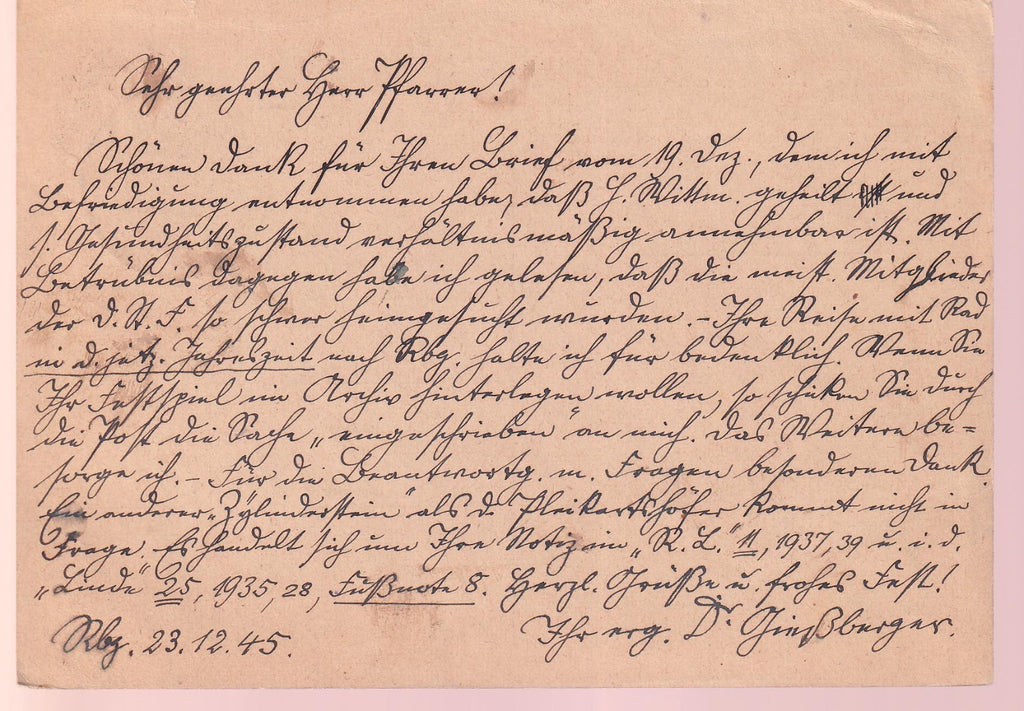 Sehr geehrter Herr Pfarrer!
Schönen Dank für Ihren Brief vom 19. Dez., dem ich mit
Befriedigung entnommen habe, daß H. Wittm. geheilt und
s. Gesundheitszustand verhältnismäßig annehmbar ist. Mit
Betrübnis dagegen habe ich gelesen, daß die meist. Mitglieder
der D. St. F. so schwer heimgesucht wurden. – Ihre Reise mit Rad
in d. jetz. Jahreszeit nach Rbg. halte ich für bedenklich. Wenn Sie
Ihr Festspiel im Archiv hinterlegen wollen, so schicken Sie durch
die Post die Sache „eingeschrieben" an mich. Das Weitere be=
sorge ich. – Für die Beantwortg. m. Fragen besonderen Dank.
Ein anderer „Zylinderstein" als d. Pleikartshöfer kommt nicht in
Frage. Es handelt sich um Ihre Notiz im „R. L." 11, 1937, 39 u. i. d.
„Linde" 25, 1935, 28, Fußnote 8. Herzl. Grüße u. frohes Fest!
Rbg. 23.12.45. Ihr erg. Dr Gießberger.